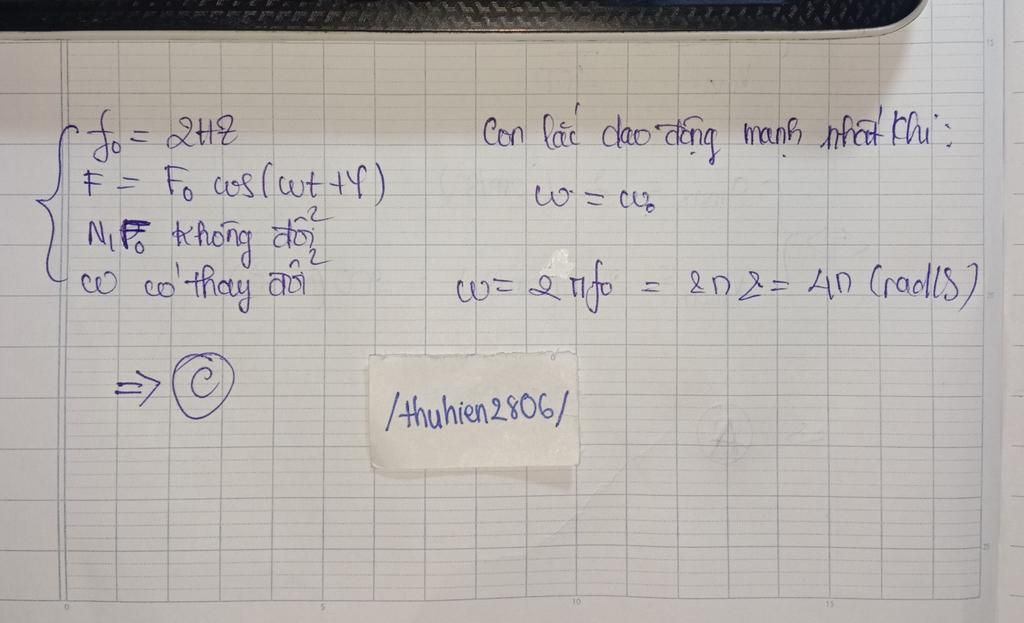 f₀ = 2Hz
F = F₀ cos(ωt + φ)
N, F₀ không đổi
ω có thay đổi
=> C
Con lắc dao động mạnh nhất khi:
ω = ω₀
ω = 2πf₀ = 2π2 = 4π (rad/s)
/thuhien2806/
A
0 5 10 15